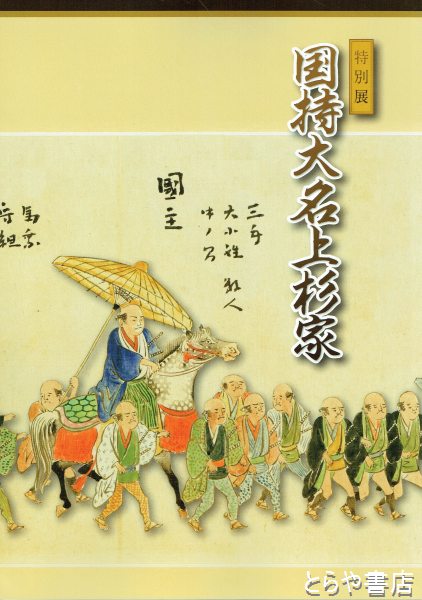 特別展
国持大名上杉家
三手
大小姓 数人
中ノ間
國主
馬乗
守組
とらや書店